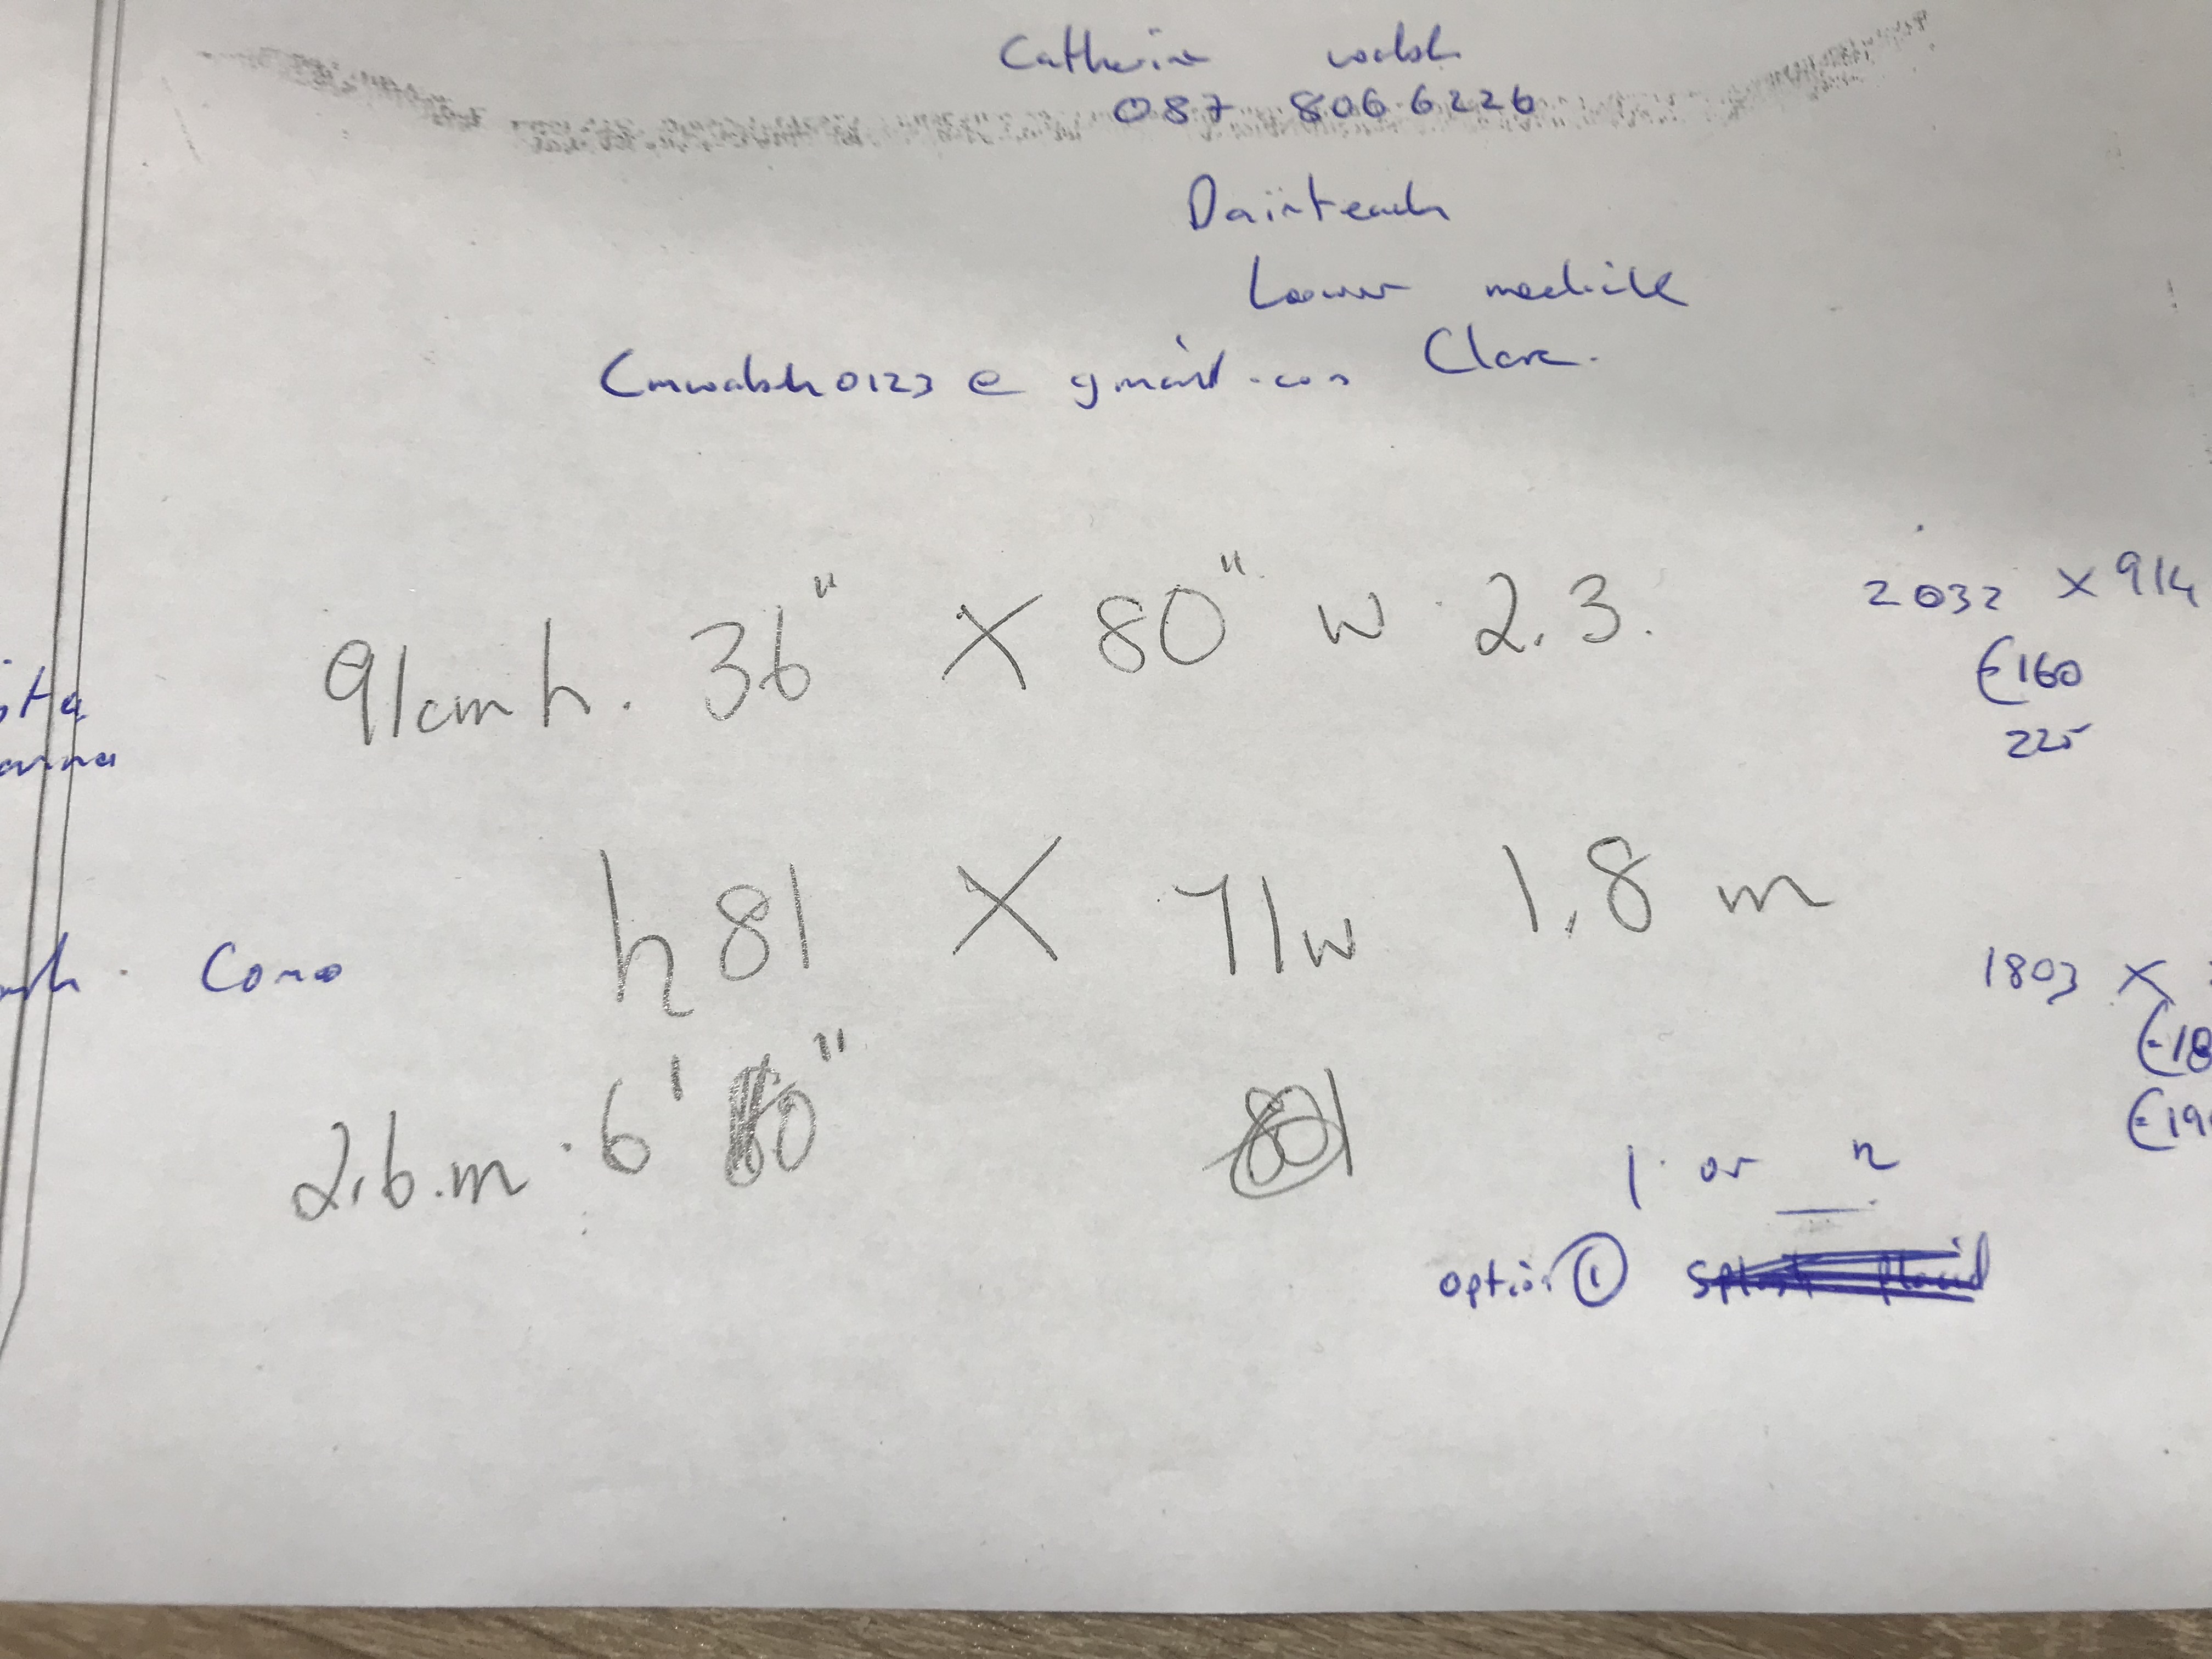 Catherine Walsh
087 806 6226
Dairteach
Lower
Clare.
Cmwalsh0123@gmail.com
91cm h. 36" X 80" w 2.3.
2032 X 914
€160
225
h 81 X 71w 1.8 m
Como
1803 X
€18
€19
2.6.m. 6'
81
1 or 2
option ①